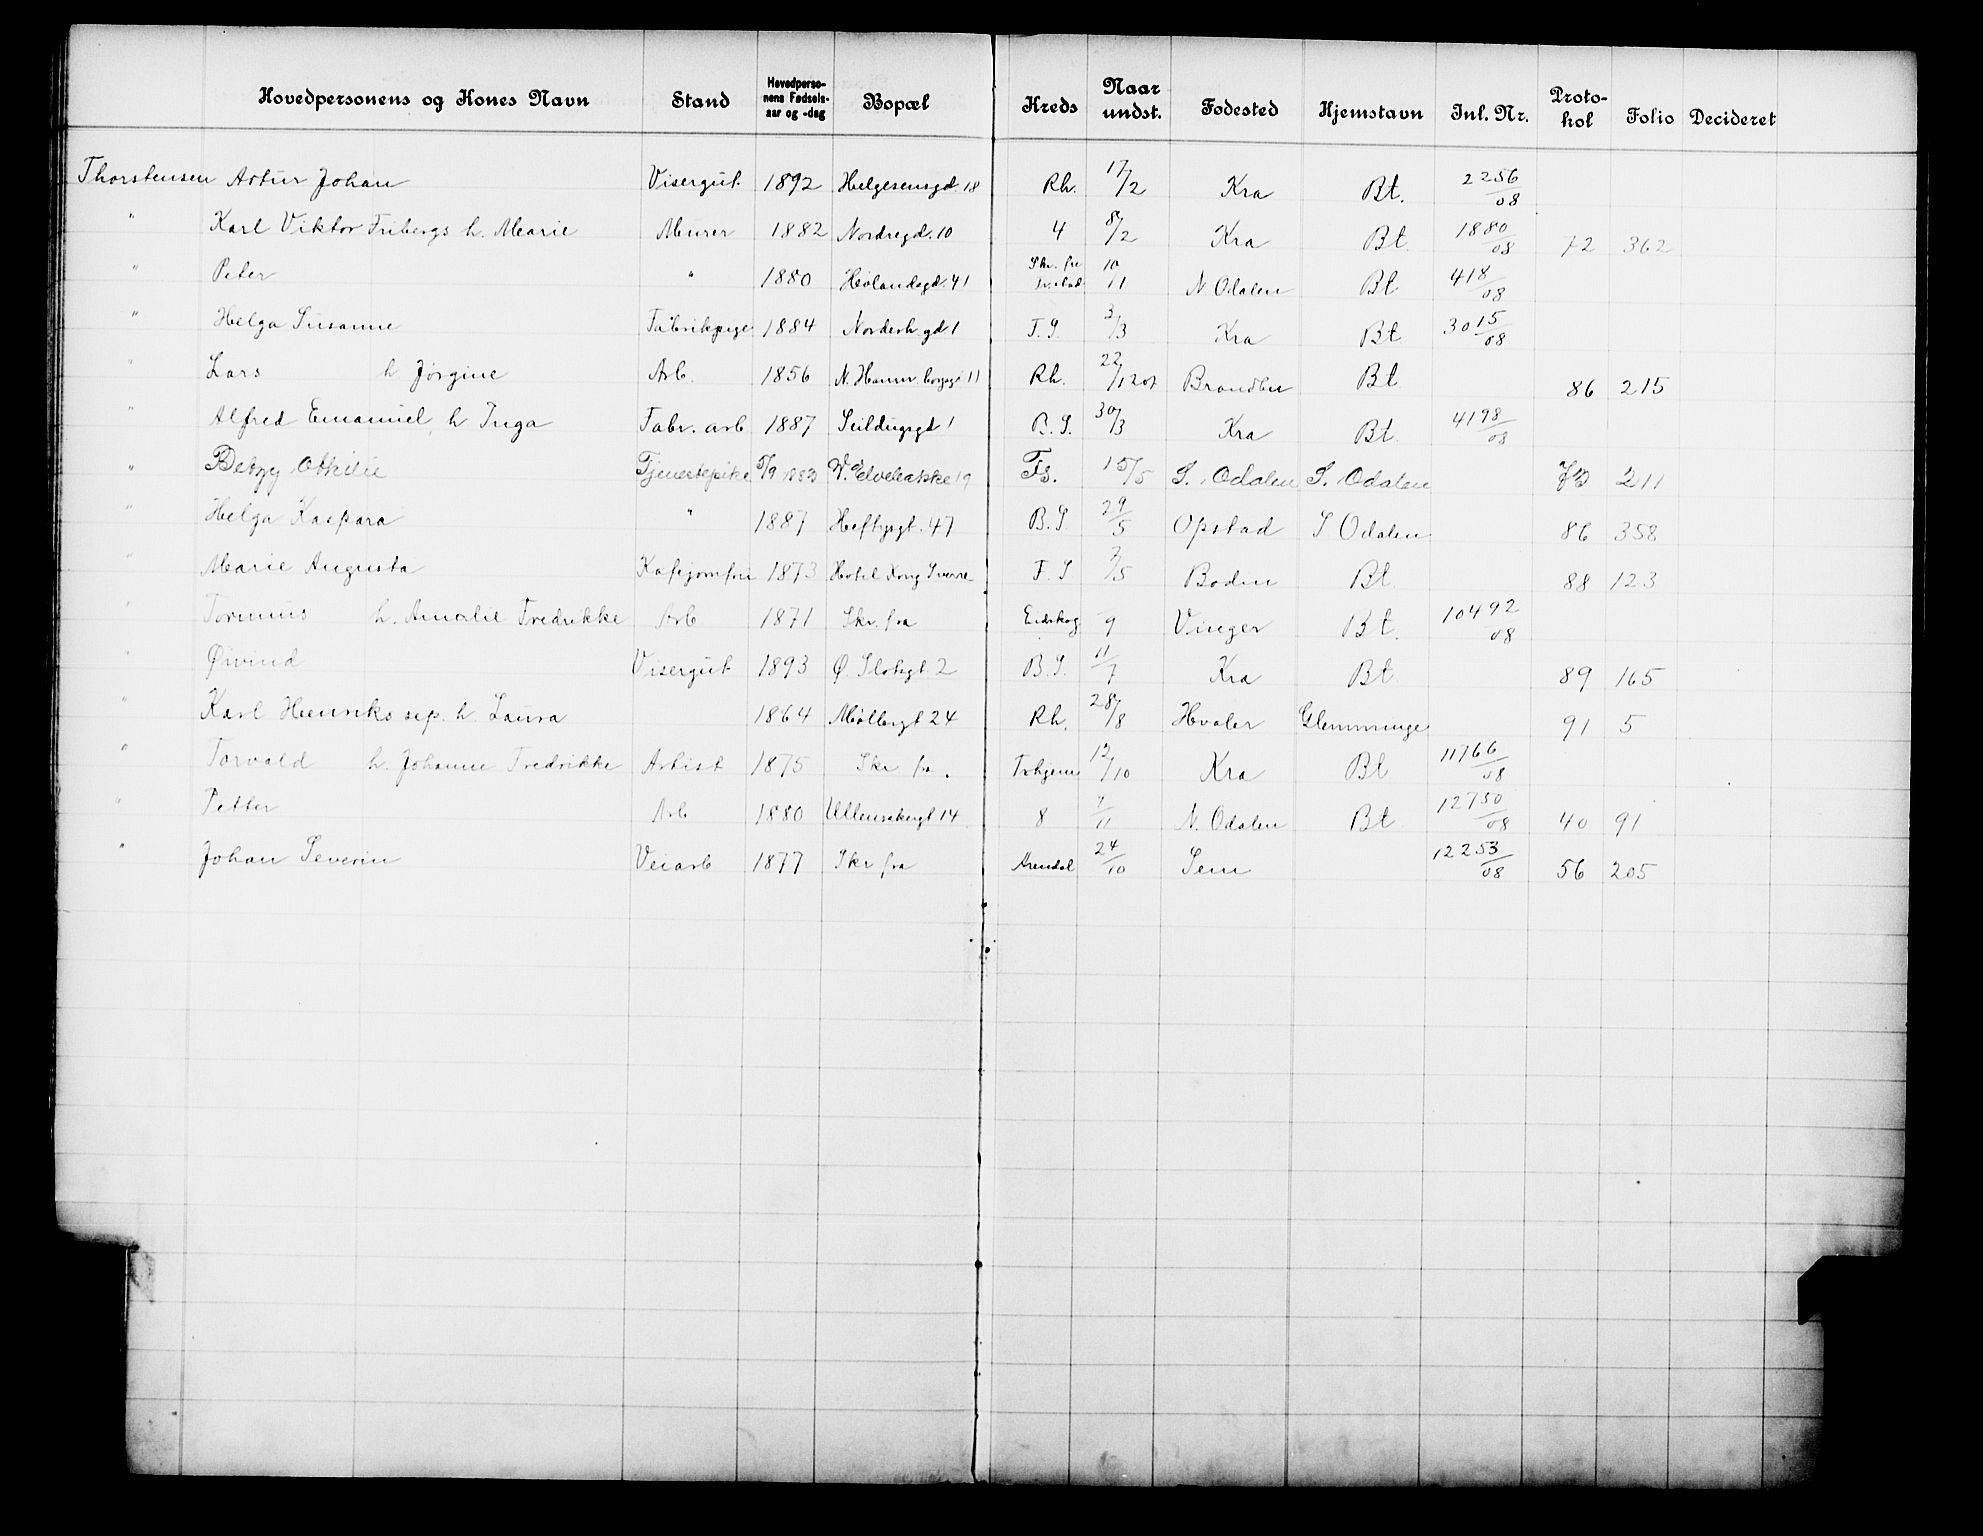 Hovedpersonens og Kones Navn Stand Hovedpersonens Fødselsaar og -dag Bopæl Kreds Naar undst. Fødested Hjemstavn Inl. Nr. Protokol Folio Decideret
Thorstensen Artur Johan Visergut 1892 Helgesensgd. 18 Rh. 17/2 Kra Bt. 2256/08
" Karl Viktor Fribergs h. Marie Murer 1882 Nordregd. 10 4 8/2 Kra Bt. 1880/08 72 362
" Peter " 1880 Hølandsgd. 41 Skr. fra 10/1 N. Odalen Bt 418/08
" Helga Susanne Fabrikpige 1884 Norderh.gd 1 F.S. 3/3 Kra Bt 3015/08
" Lars h Jørgine Arb. 1856 N. Hamm. borggt 11 Rh. 22/12 07 Brandbu Bt 86 215
" Alfred Emanuel h Inga Fabr. arb 1887 Seildugsgd 1 B.S. 30/3 Kra Bt. 4198/08
" Betzy Othilie Tjenestepike 5/9 1883 V. Elvebakke 19 Fs. 15/5 S. Odalen S. Odalen 211
" Helga Kaspara " 1887 Heftyegt. 47 B.S. 29/5 Opstad S Odalen 86 358
" Marie Augusta Kafejomfru 1873 Hotel Kong Sverre F.S 7/5 Boden Bt. 88 123
" h. Amalie Fredrikke Arb 1871 Skr. fra Eidskog 9 Vinger Bt. 10492/08
" Øivind Visergut 1893 Ø. Slotsgt. 2 B.S. 11/7 Kra Bt. 89 165
" Karl Henriks sep. h. Laura 1864 Møllergt 24 Rh. 28/8 Hvaler Glemminge 91 5
" Torvald h. Johanne Fredrikke Artist 1875 Skr fra. Trhjem 12/10 Kra Bt 11766/08
" Petter Arb 1880 Ullensakergt 14 8 7/11 N. Odalen Bt 12750/08 40 91
" Johan Severin Veiarb 1877 Skr fra Arendal 24/10 Sem 12253/08 56 205